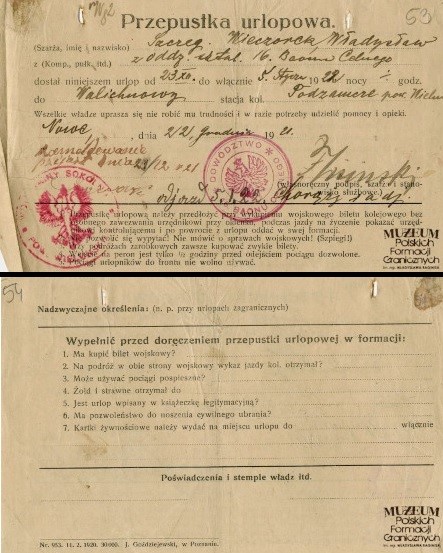 53
Przepustka urlopowa.
(Szarża, imię i nazwisko) Szereg. Wieczorek Władysław
z (Komp., pułk itd.) z oddz. sztab. 16. Baonu Celnego
dostał niniejszem urlop od 23.XII. do włącznie 5/Stycz 1922 nocy godz.
do Walichnowy stacja kol. Podzamcze
Wszelkie władze uprasza się nie robić mu trudności i w razie potrzeby udzielić pomocy i opieki.
Nowe, dnia 2/21. Grudnia 1921.
DOWÓDZTWO
(własnoręczny podpis, szarża i stanowisko służbowe)
odjazd 5.1.22
Przepustkę urlopową należy przedłożyć przy kupowaniu wojskowego biletu kolejowego bez
osobnego zawezwania urzędnikowi przy okienku, podczas jazdy na życzenie pokazać urzędnikowi
kontrolującemu i po powrocie z urlopu oddać w swej formacji.
Nie pozwolić się wypytać! Nie mówić o sprawach wojskowych! (Szpiegi!)
Przy podróżach zarobkowych zawsze kupować zwykłe bilety.
Wejście na peron jest tylko ½ godziny przed odejściem pociągu dozwolone.
Pociągi urlopników do frontu nie wolno używać.
MUZEUM
Polskich
Formacji
Granicznych
54
Nadzwyczajne określenia: (n. p. przy urlopach zagranicznych)
Wypełnić przed doręczeniem przepustki urlopowej w formacji:
1. Ma kupić bilet wojskowy?
2. Na podróż w obie strony wojskowy wykaz jazdy kol. otrzymał?
3. Może używać pociągi pospieszne?
4. Żołd i strawne otrzymał do
5. Jest urlop wpisany w książeczkę legitymacyjną?
6. Ma pozwoleństwo do noszenia cywilnego ubrania?
7. Kartki żywnościowe należy wydać na miejscu urlopu do włącznie
Poświadczenia i stemple władz itd.
Nr. 953. 11. 2. 1920. 30000. J. Goździejewski, w Poznaniu.
MUZEUM
Polskich
Formacji
Granicznych